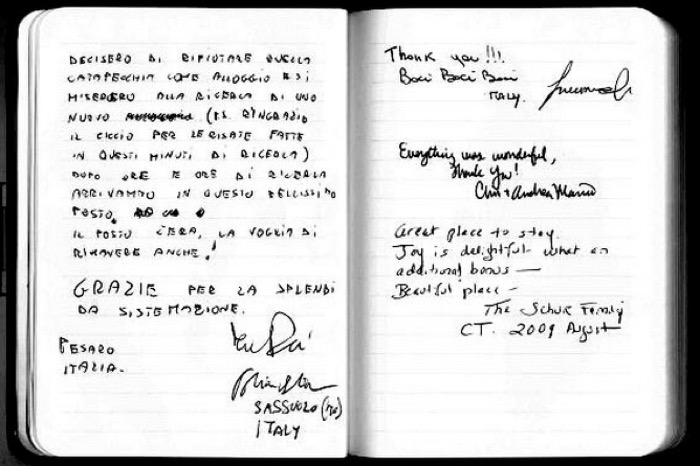 DECISERO DI RIFIUTARE QUELLA
CATAPECCHIA COME ALLOGGIO E SI
MISERO ALLA RICERCA DI UNO
NUOVO (P.S. RINGRAZIO
IL CICCIO PER LE RISATE FATTE
IN QUESTI MINUTI DI RICERCA)
DOPO ORE E ORE DI RICERCA
ARRIVAMMO IN QUESTO BELLISSIMO
POSTO.
IL POSTO C'ERA, LA VOGLIA DI
RIMANERE ANCHE!
GRAZIE PER LA SPLENDI
DA SISTEMAZIONE.
PESARO
ITALIA.
SASSUOLO (MO)
ITALY
Thank you!!!
Baci Baci Baci
ITALY.
Everything was wonderful,
Thank You!
Chris + Andrea
Great place to stay.
Joy is delightful what an
additional bonus —
Beautiful place –
The Schuk Family
CT. 2009 August